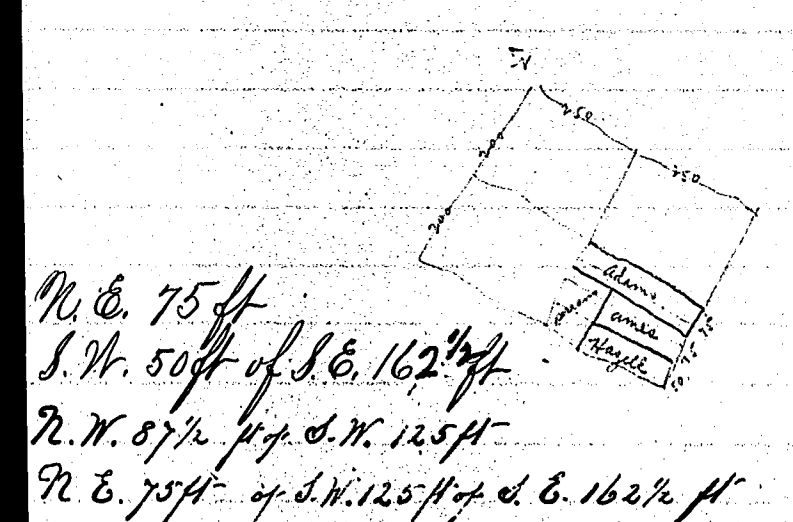 N
250
200
250
200
Adams.
Ames
Hazell
75
75
50.
N.E. 75 ft
S.W. 50 ft of S.E. 162 1/2 ft
N.W. 87 1/2 ft of S.W. 125 ft
N.E. 75 ft of S.W. 125 ft of S.E. 162 1/2 ft